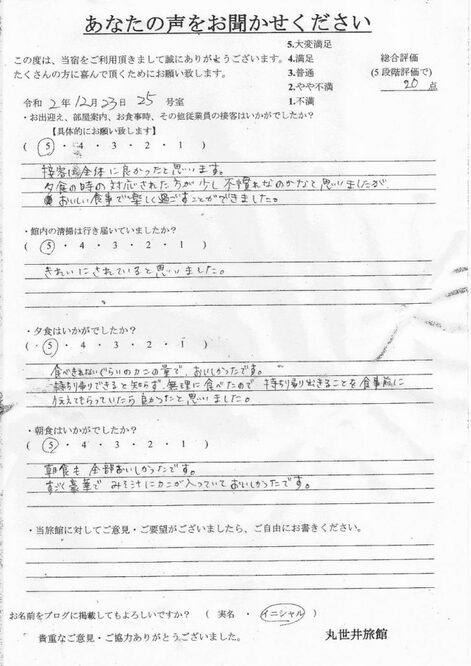 あなたの声をお聞かせください
この度は、当宿をご利用頂きまして誠にありがとうございます。
たくさんの方に喜んで頂くためにお願い致します。
5.大変満足
4.満足
3.普通
2.やや不満
1.不満
総合評価
(5段階評価で)
20 点
令和 2年 12月 23日 25 号室
・お出迎え、部屋案内、お食事時、その他従業員の接客はいかがでしたか?
【具体的にお願い致します】
( 5 ・ 4 ・ 3 ・ 2 ・ 1 )
接客は全体に良かったと思います。
夕食の時の対応された方が少し不慣れなのかなと思いましたが、
おいしい食事で楽しく過ごすことができました。
・館内の清掃は行き届いていましたか?
( 5 ・ 4 ・ 3 ・ 2 ・ 1 )
きれいにされていると思いました。
・夕食はいかがでしたか?
( 5 ・ 4 ・ 3 ・ 2 ・ 1 )
食べきれないぐらいのカニの量で、おいしかったです。
持ち帰りできると知らず、無理に食べたので、持ち帰り出きることを食事前に
伝えてもらっていたら良かったと思いました。
・朝食はいかがでしたか?
( 5 ・ 4 ・ 3 ・ 2 ・ 1 )
朝食も全部おいしかったです。
すごく豪華で みそ汁にカニが入っていておいしかったです。
・当旅館に対してご意見・ご要望がございましたら、ご自由にお書きください。
お名前をブログに掲載してもよろしいですか? ( 実名 ・ イニシャル )
貴重なご意見・ご協力ありがとうございました。
丸世井旅館